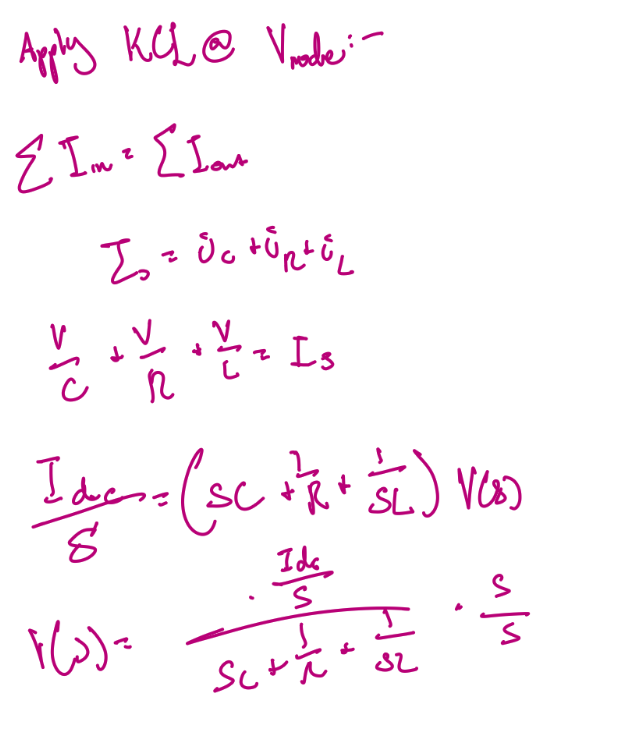 Apply KCL @ Vnode:-
∑ Iin = ∑ Iout
Is = ic + iR + iL
V/C + V/R + V/L = Is
Idc/s = (sC + 1/R + 1/sL) V(s)
V(s) = (Idc/s)/(sC + 1/R + 1/sL) · s/s